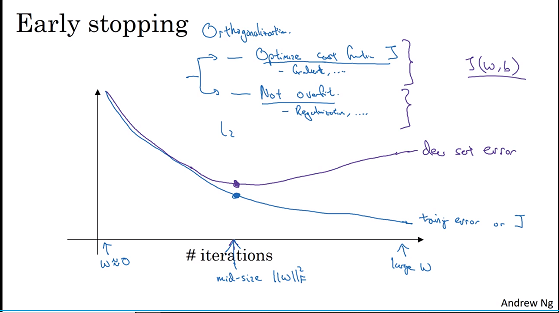 Early stopping
Orthogonalization.
— Optimize cost function J
- Gradient, ....
J(w,b)
— Not overfit.
- Regularization, ....
L2
dev set error
training error or J
w≈0
# iterations
mid-size ||w||²F
large w
Andrew Ng